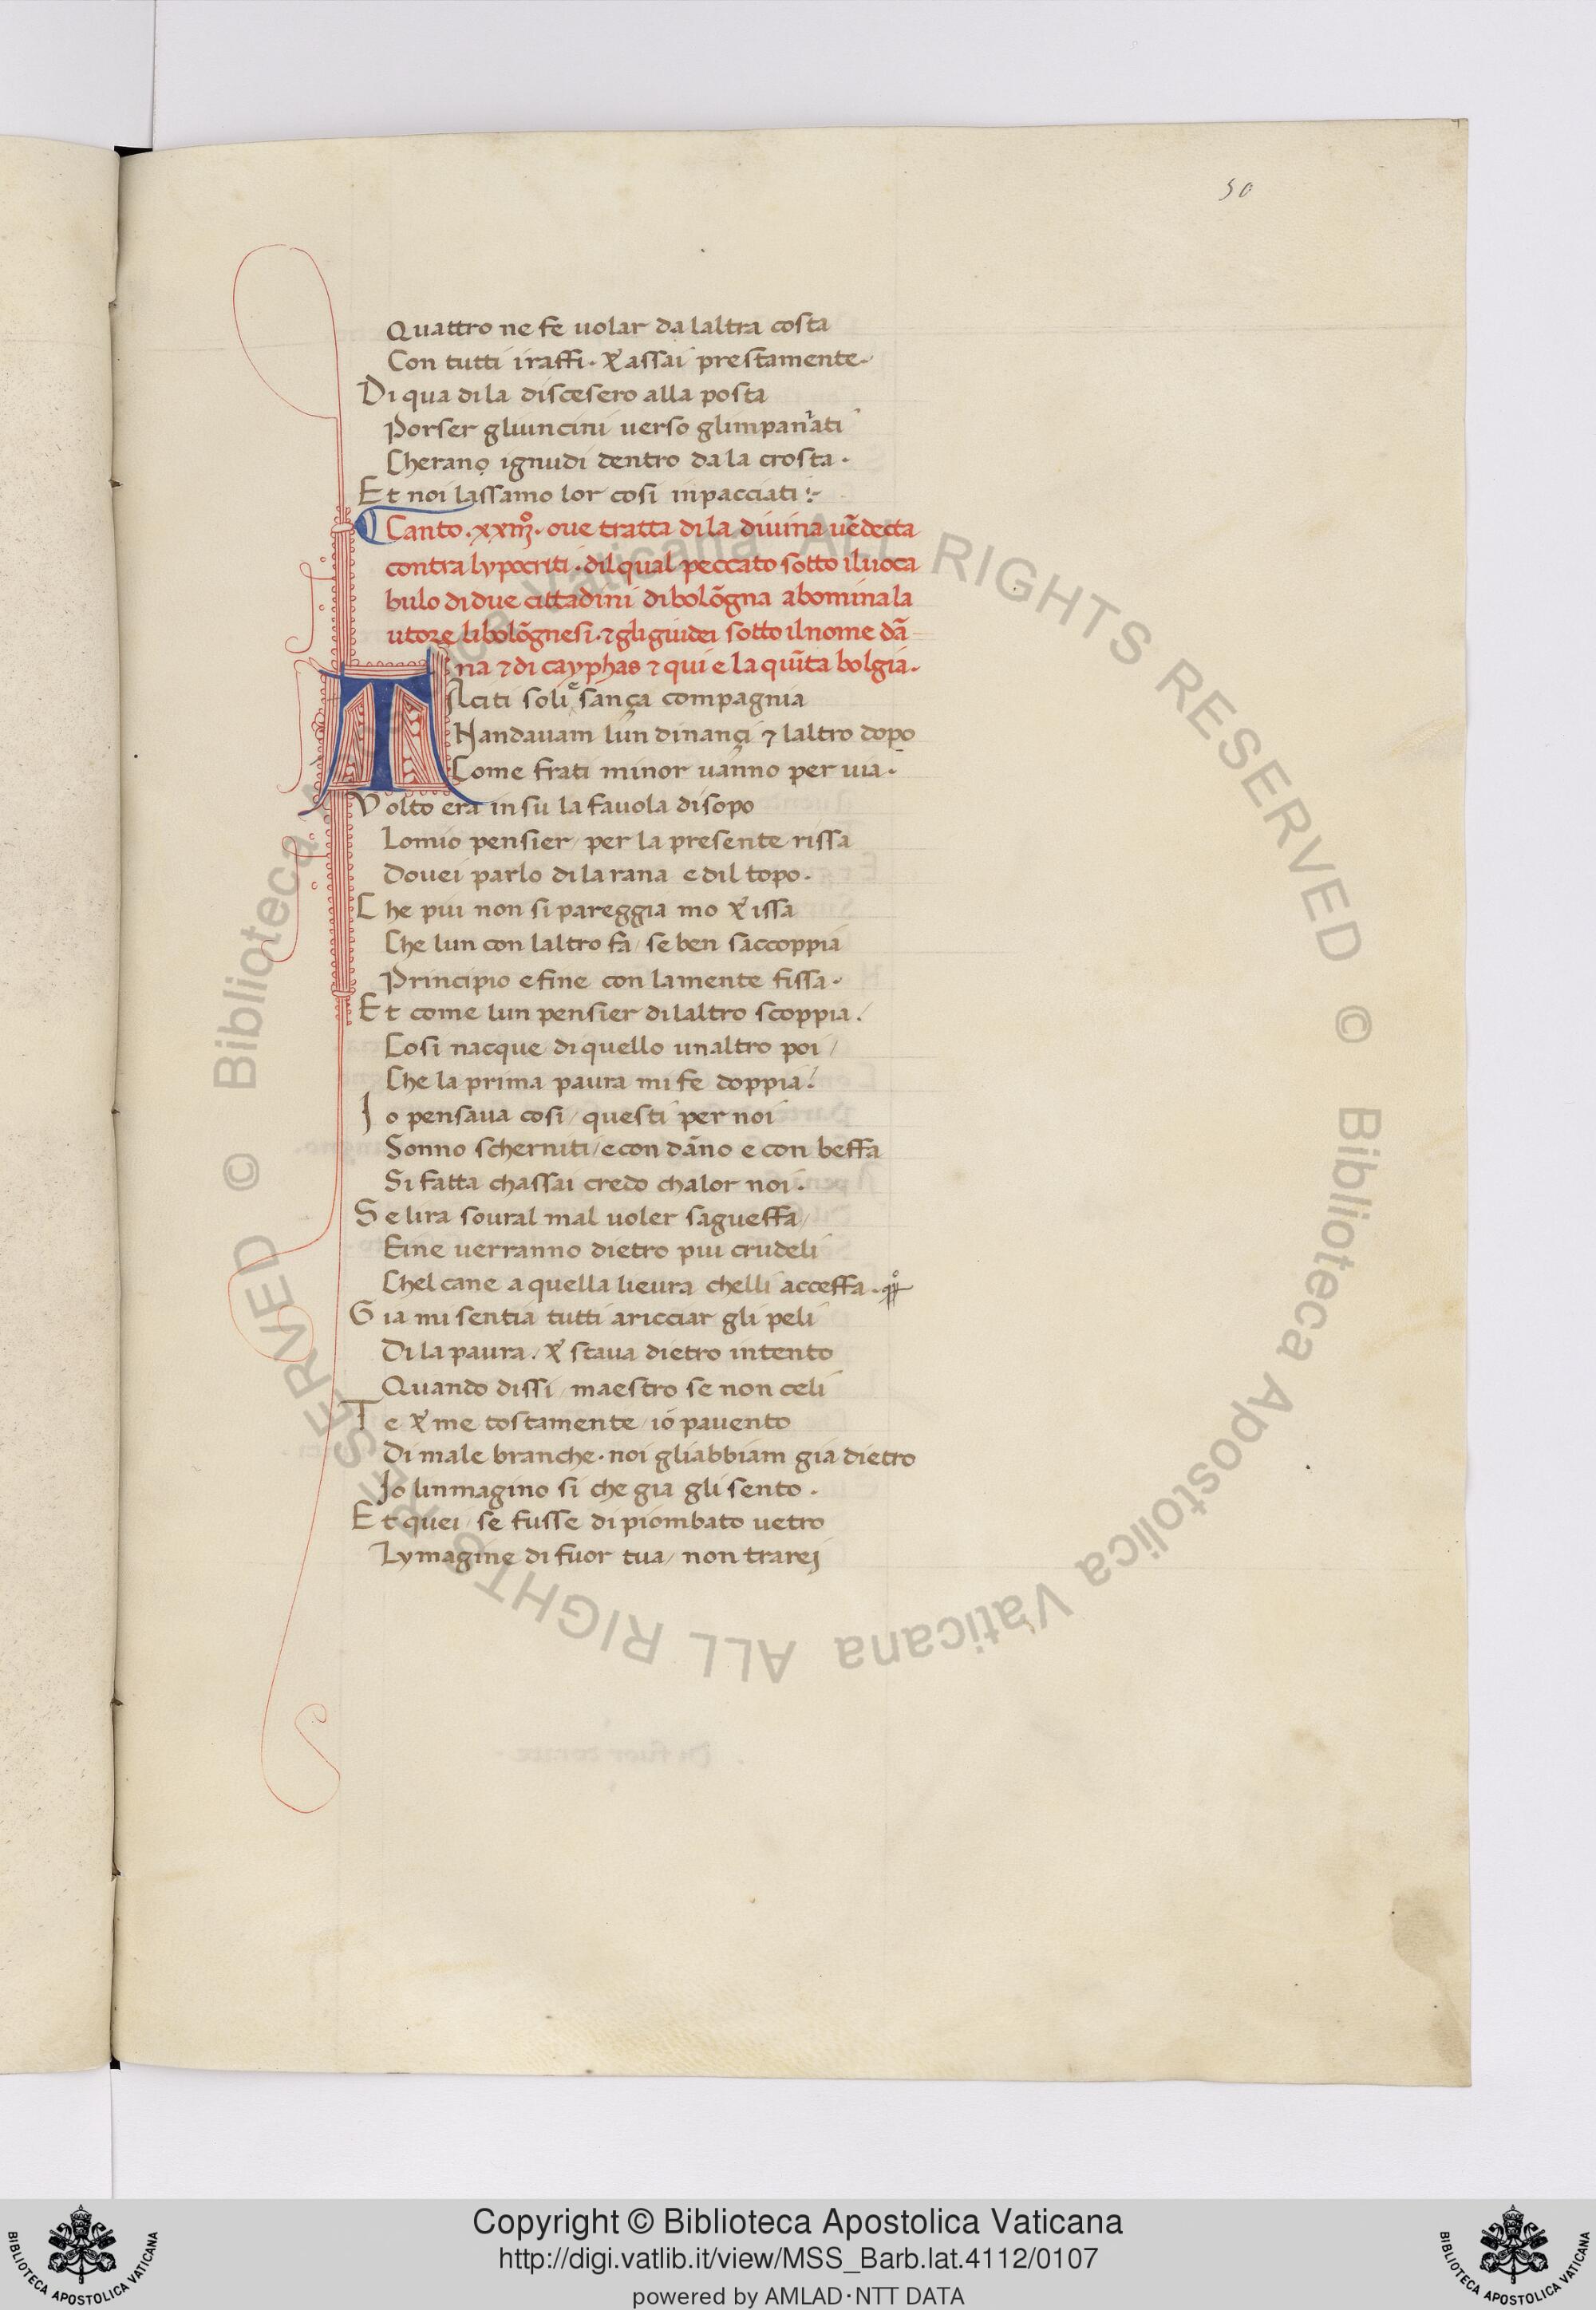 50
Quattro ne fe uolar da laltra costa
Con tutti i raffi · & assai prestamente ·
Di qua di la discesero alla posta
Porser gliuncini uerso glimpan̄ati
Cherano ignudi dentro da la crosta ·
Et noi lassamo lor cosi inpacciati :-
Canto · xxiijº · oue tratta di la diuina uēdecta
contra lypocriti · dil qual peccato sotto il uoca
bulo di due cittadini di bolōgna abomina la
utore li bolōgnesi · ⁊ gli guidei sotto il nome dā
na ⁊ di cayphas ⁊ qui e la quīta bolgia ·
TAciti soli e sança compagnia
Nandauam lun dinançi ⁊ laltro dopo
Come frati minor uanno per uia ·
Volto era in su la fauola disopo
Lo mio pensier / per la presente rissa
Douei parlo di la rana e dil topo ·
Che piu non si pareggia mo & issa
Che lun con laltro fa / se ben saccoppia
Principio e fine con la mente fissa ·
Et come lun pensier di laltro scoppia /
Cosi nacque di quello unaltro poi /
Che la prima paura mi fe doppia /
Io pensaua cosi / questi per noi
Sonno scherniti / e con dāno e con beffa
Si fatta chassai credo chalor noi ·
Se lira soural mal uoler sagueffa /
Eine uerranno dietro piu crudeli
Chel cane a quella lieura chelli acceffa ·
Gia mi sentia tutti aricciar gli peli
Di la paura / & staua dietro intento
Quando dissi / maestro se non celi
Te & me tostamente / io pauento
Di male branche · noi gliabbiam gia dietro
Io linmagino si che gia gli sento ·
Et quei / se fusse di piombato uetro
Lymagine di fuor tua / non trarej
© Biblioteca Apostolica Vaticana ALL RIGHTS RESERVED © Biblioteca Apostolica Vaticana ALL RIGHTS RESERVED
Copyright © Biblioteca Apostolica Vaticana
http://digi.vatlib.it/view/MSS_Barb.lat.4112/0107
powered by AMLAD·NTT DATA
BIBLIOTECA APOSTOLICA VATICANA
BIBLIOTECA APOSTOLICA VATICANA